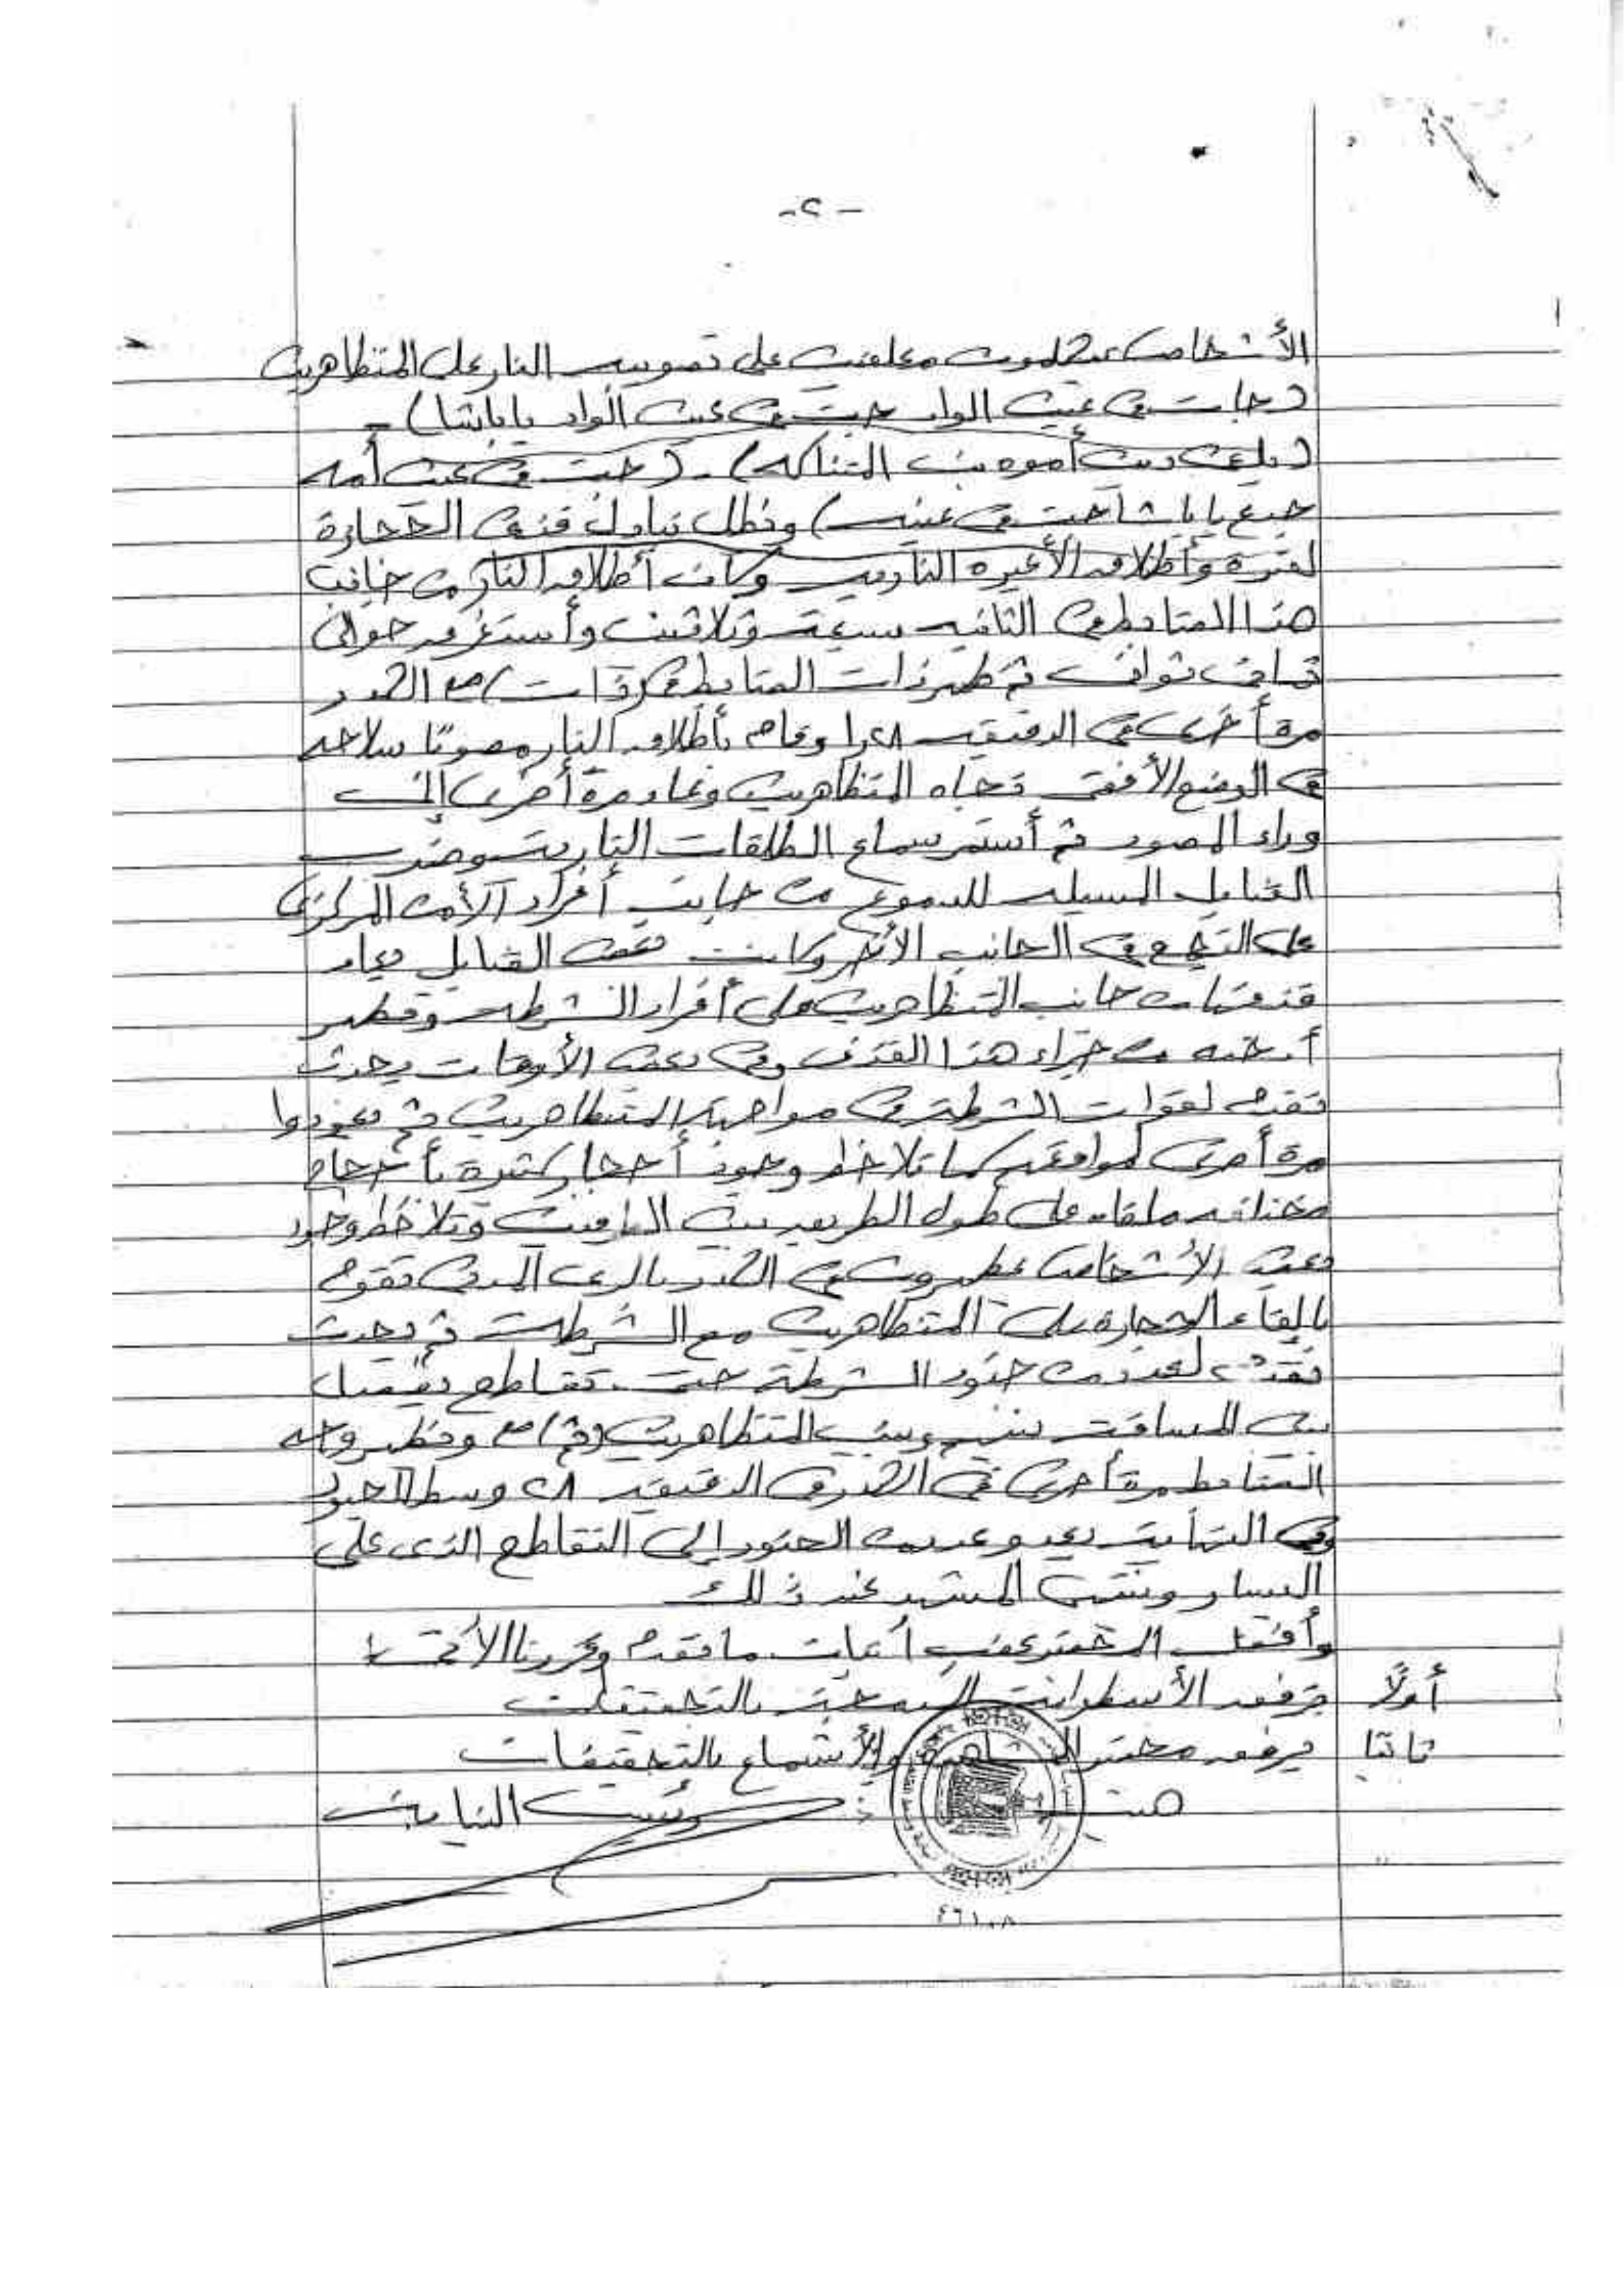 -٢-
الأشخاص يتكلمون معلقين على تصويب النار على المتظاهرين
(جات في عين الواد جت في عين الواد يا باشا) -
(دين أموه بن المتناكه) - (جت في عين أمه
جدع يا باشا جت في عينيه) ونظل تبادل قذف الحجارة
لفترة وأطلاق الأعيره الناريه وكان أطلاق النار من جانب
هذا الضابط في الثانيه سبعة وثلاثين وأستغرق حوالى
ثمانى ثوانى ثم ظهر ذات الضابط في ذات الكدر
مرة أخرى في الدقيقه ١،٢٨ وقام بأطلاق النار مصوبًا سلاحه
في الوضع الأفقى تجاه المتظاهرين وعاد مرة أخرى إلى
وراء المصور ثم أستمر سماع الطلقات النارية وضرب
القنابل المسيله للدموع من جانب أفراد الأمن المركزى
على التجمع في الجانب الأخر وكانت بعض القنابل يعاد
قذفها من جانب المتظاهرين على أفراد الشرطه وتظهر
أدخنه من جراء هذا القذف وفى بعض الأوقات يحدث
تقدم لقوات الشرطة في مواجهة المتظاهرين ثم يعودوا
مرة أخرى لمواقعهم كما تلاحظ وجود أحجار كثيرة بأحجام
مختلفه ملقاه على طول الطريق بين الجانبين وتلاحظ وجود
بعض الأشخاص يظهرون في الكدر بالزى المدنى تقوم
بإلقاء الحجاره على المتظاهرين مع الشرطة ثم يحدث
تقدم لعدد من جنود الشرطة حتى تقاطع يفصل
بين المسافة بينهم وبين المتظاهرين وظهر وجه
الضابط مرة أخرى في الكدر في الدقيقه ٢٨ وسط الجنود
وفى النهاية يعدو عدد من الجنود إلى التقاطع الذى على
اليسار وينتهى المشهد عند ذلك
وأقفل المحضر عقب أثبات ما تقدم وقررنا الأتى
أولاً يرفق الأسطوانة المدمجة بالتحقيقات
ثانيًا يرفق محضر المشاهدة والأستماع بالتحقيقات
رئيس النيابة